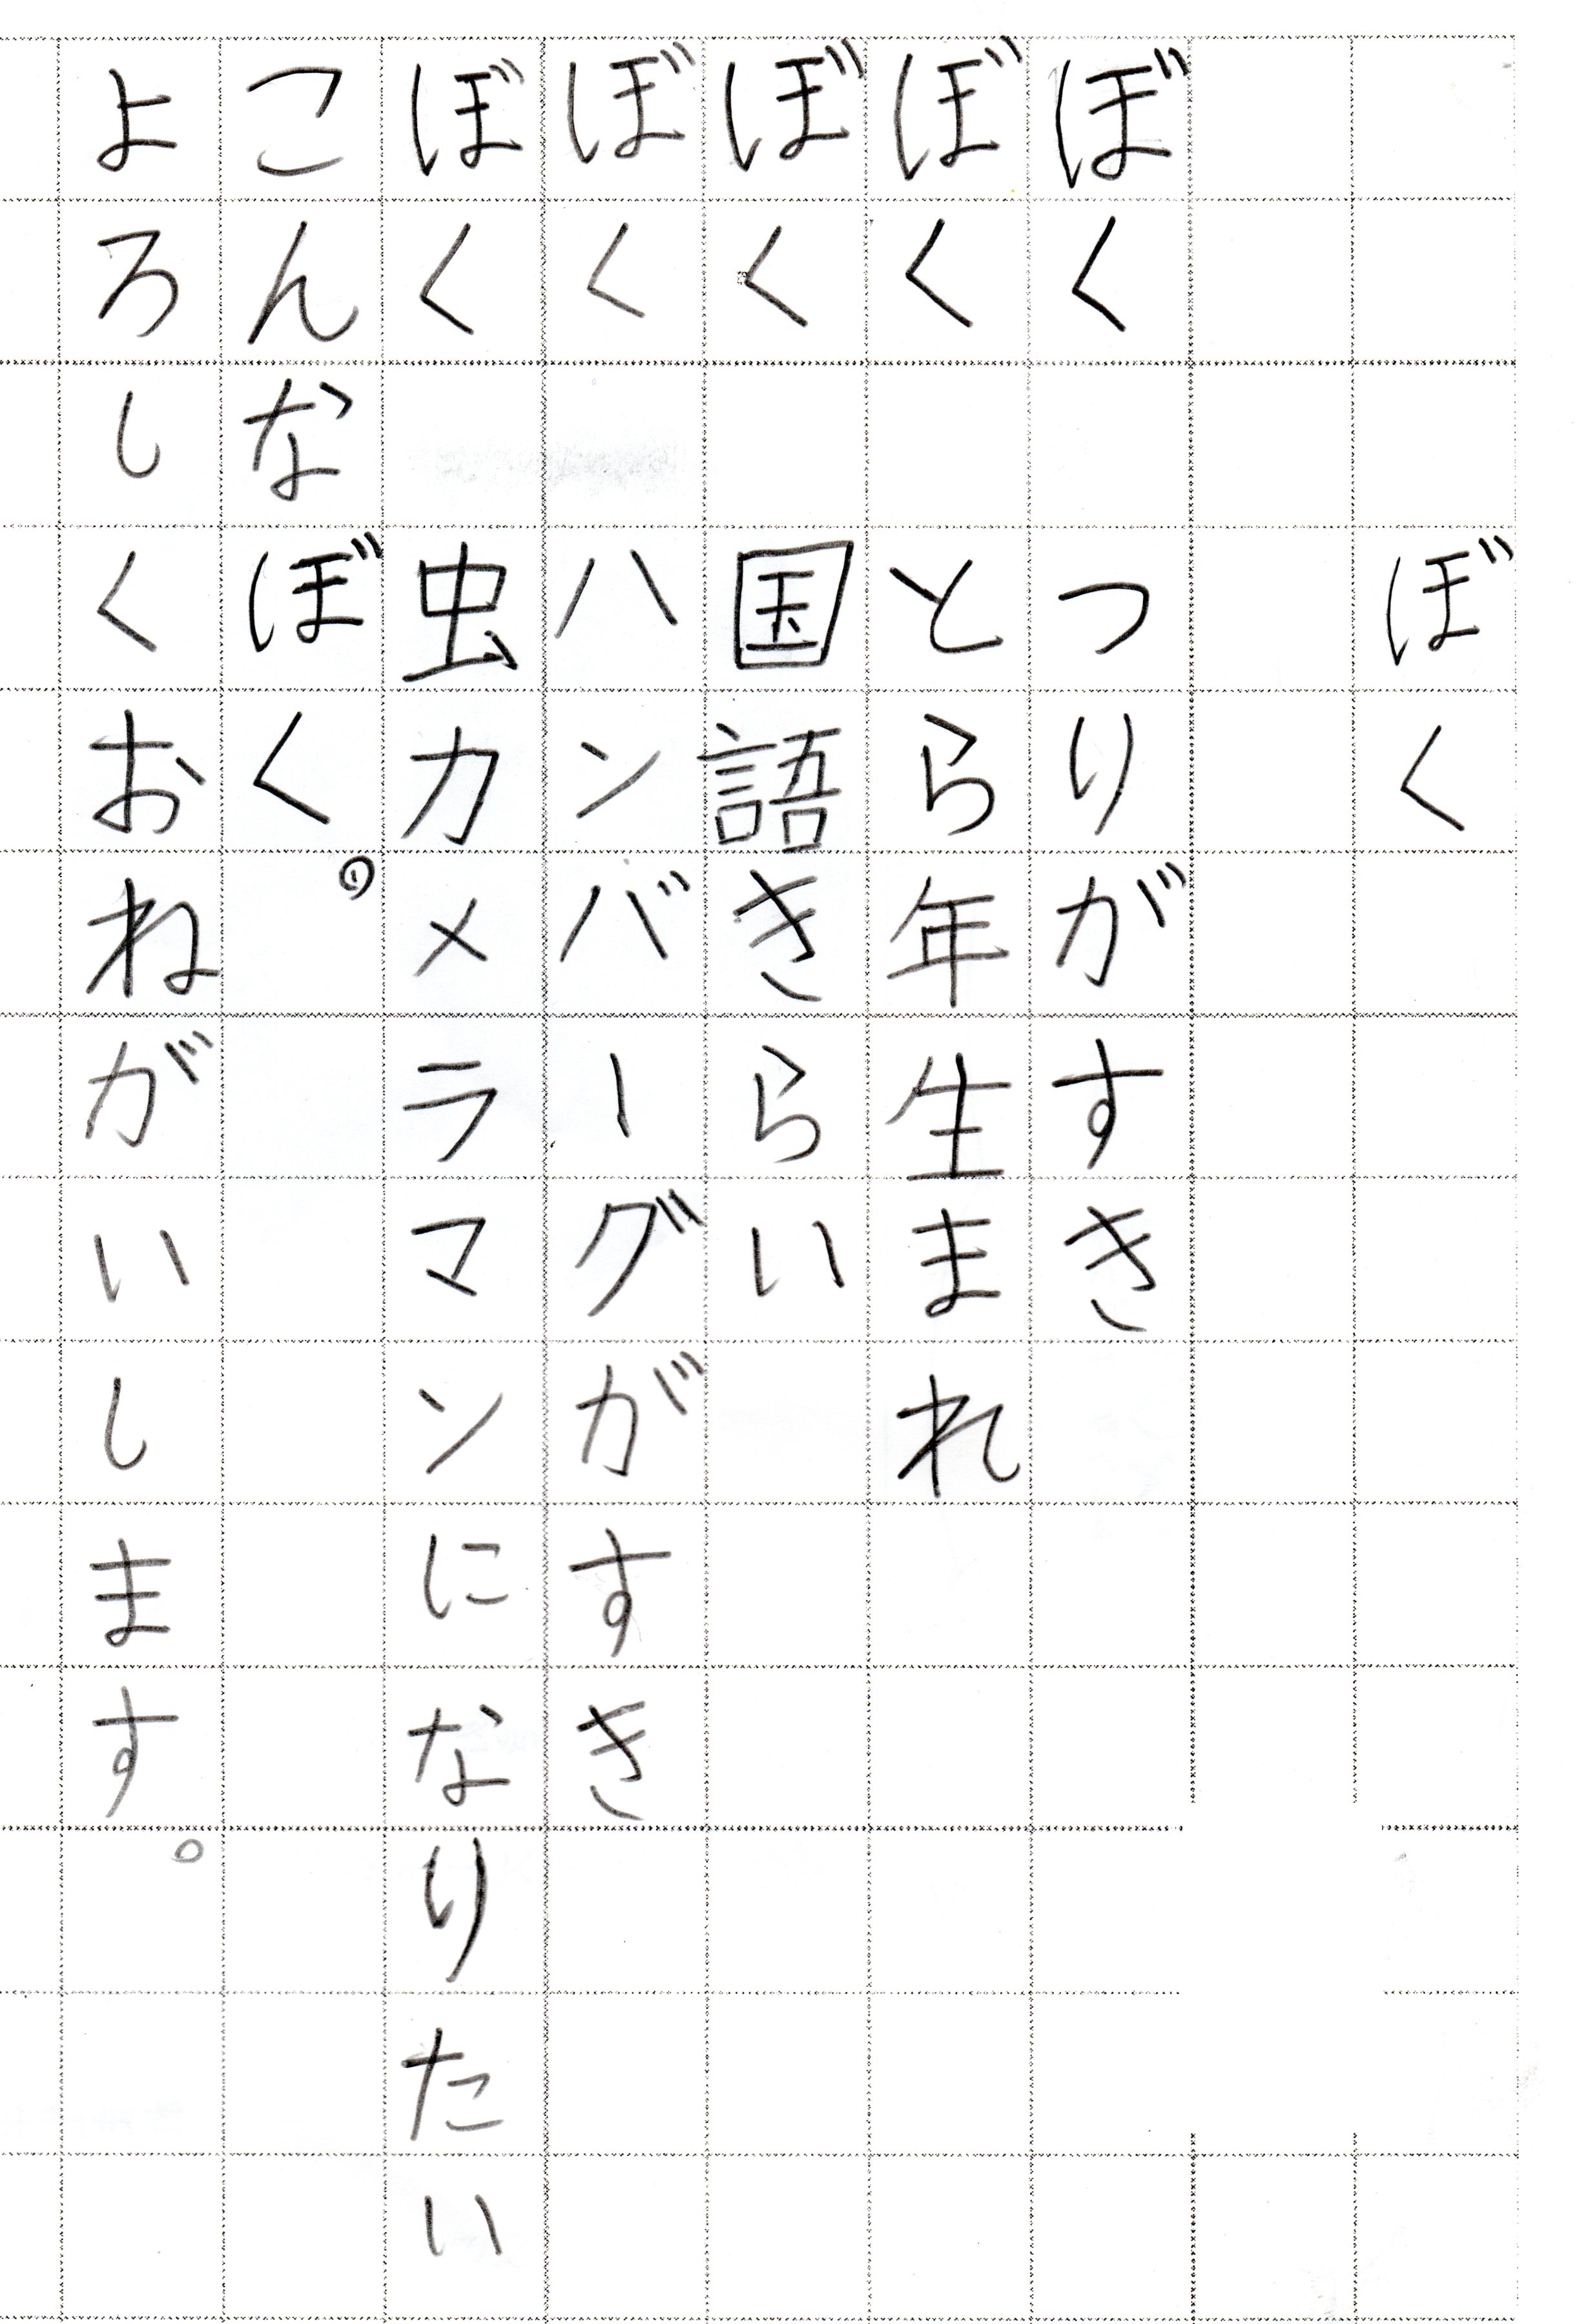 ぼく
ぼく　つりがすき
ぼく　とら年生まれ
ぼく　国語きらい
ぼく　ハンバーグがすき
ぼく　虫カメラマンになりたい
こんなぼく。
よろしくおねがいします。